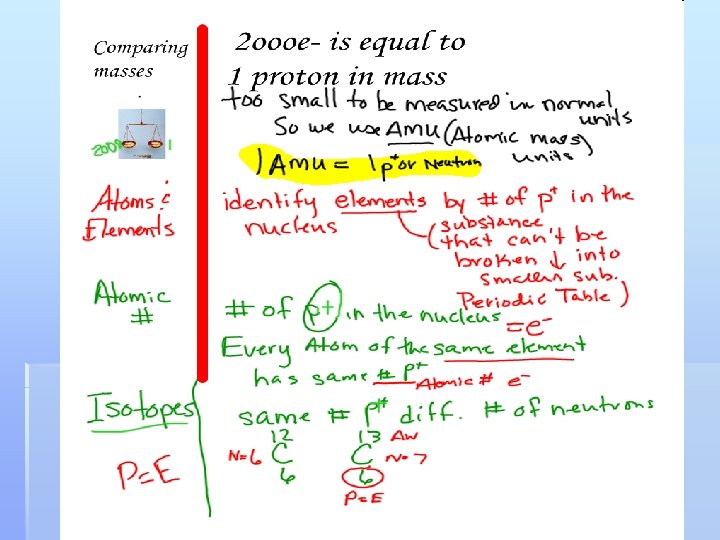 Comparing masses
2000e- is equal to
1 proton in mass
too small to be measured in normal units
So we use AMU (Atomic mass units)
1 AMU = 1 p+ or Neutron
2000 1
Atoms & Elements
identify elements by # of p+ in the nucleus
(substance that can't be broken ↓ into smaller sub. Periodic Table)
Atomic #
# of p+ in the nucleus = e-
Every Atom of the same element
has same # p+
Atomic # e-
Isotopes
same # p+ diff. # of neutrons
12 13 AW
N=6 C C N=7
6 6
P=E
P=E